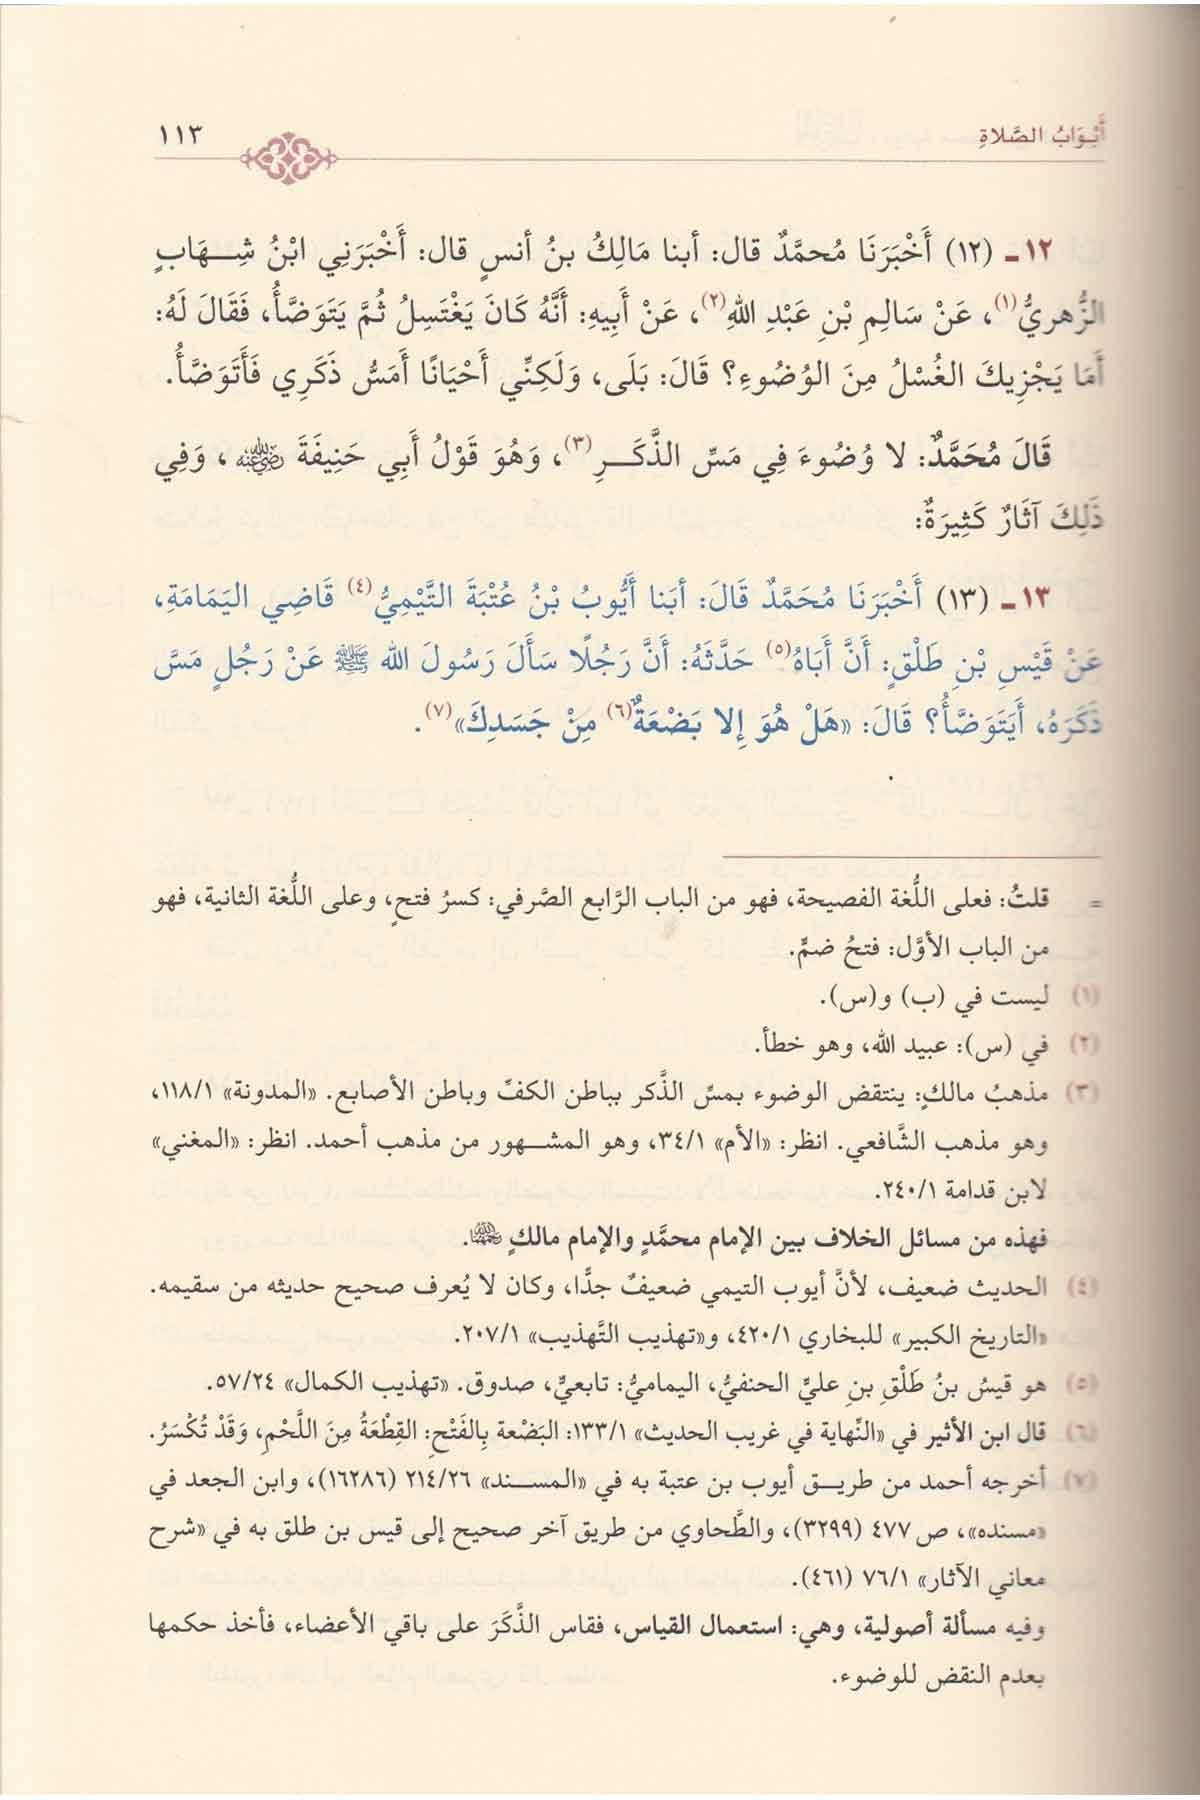 أَبْوَابُ الصَّلَاةِ ١١٣
١٢ ـ (١٢) أَخْبَرَنَا مُحمَّدٌ قال: أبنا مَالِكُ بنُ أنسٍ قال: أَخْبَرَنِي ابْنُ شِهَابٍ
الزُّهريُّ(١)، عَنْ سَالِمِ بْنِ عَبْدِ اللهِ(٢)، عَنْ أَبِيهِ: أَنَّهُ كَانَ يَغْتَسِلُ ثُمَّ يَتَوَضَّأُ، فَقَالَ لَهُ:
أَمَا يَجْزِيكَ الغُسْلُ مِنَ الوُضُوءِ؟ قَالَ: بَلَى، وَلَكِنِّي أَحْيَانًا أَمَسُّ ذَكَرِي فَأَتَوَضَّأُ.
قَالَ مُحَمَّدٌ: لا وُضُوءَ فِي مَسِّ الذَّكَرِ(٣)، وَهُوَ قَوْلُ أَبِي حَنِيفَةَ رضي الله عنه، وَفِي
ذَلِكَ آثَارٌ كَثِيرَةٌ:
١٣ ـ (١٣) أَخْبَرَنَا مُحَمَّدٌ قَالَ: أبَنا أَيُّوبُ بْنُ عُتْبَةَ التَّيْمِيُّ(٤) قَاضِي اليَمَامَةِ،
عَنْ قَيْسِ بْنِ طَلْقٍ: أَنَّ أَبَاهُ(٥) حَدَّثَهُ: أَنَّ رَجُلًا سَأَلَ رَسُولَ الله ﷺ عَنْ رَجُلٍ مَسَّ
ذَكَرَهُ، أَيَتَوَضَّأُ؟ قَالَ: «هَلْ هُوَ إِلا بَضْعَةٌ(٦) مِنْ جَسَدِكَ»(٧).
= قلتُ: فعلى اللغة الفصيحة، فهو من الباب الرَّابع الصَّرفي: كسرُ فتحٍ، وعلى اللُّغة الثانية، فهو
من الباب الأوَّل: فتحُ ضمٍّ.
(١) ليست في (ب) و(س).
(٢) في (س): عبيد الله، وهو خطأ.
(٣) مذهبُ مالكٍ: ينتقض الوضوء بمسِّ الذَّكر بباطن الكفِّ وباطن الأصابع. «المدونة» ١١٨/١،
وهو مذهب الشَّافعي. انظر: «الأم» ٣٤/١، وهو المشهور من مذهب أحمد. انظر: «المغني»
لابن قدامة ٢٤٠/١.
فهذه من مسائل الخلاف بين الإمام محمَّدٍ والإمام مالكٍ رحمهما الله.
(٤) الحديث ضعيف، لأنَّ أيوب التيمي ضعيفٌ جدًّا، وكان لا يُعرف صحيح حديثه من سقيمه.
«التاريخ الكبير» للبخاري ٤٢٠/١، و«تهذيب التَّهذيب» ٢٠٧/١.
(٥) هو قيسُ بنُ طَلْقِ بنِ عليٍّ الحنفيُّ، اليماميُّ: تابعيٌّ، صدوق. «تهذيب الكمال» ٥٧/٢٤.
(٦) قال ابن الأثير في «النِّهاية في غريب الحديث» ١٣٣/١: البَضْعة بِالفَتْحِ: القِطْعَةُ مِنَ اللَّحْمِ، وَقَدْ تُكْسَرُ.
(٧) أخرجه أحمد من طريق أيوب بن عتبة به في «المسند» ٢١٤/٢٦ (١٦٢٨٦)، وابن الجعد في
«مسنده»، ص ٤٧٧ (٣٢٩٩)، والطَّحاوي من طريق آخر صحيح إلى قيس بن طلق به في «شرح
معاني الآثار» ٧٦/١ (٤٦١).
وفيه مسألة أصولية، وهي: استعمال القياس، فقاس الذَّكَرَ على باقي الأعضاء، فأخذ حكمها
بعدم النقض للوضوء.